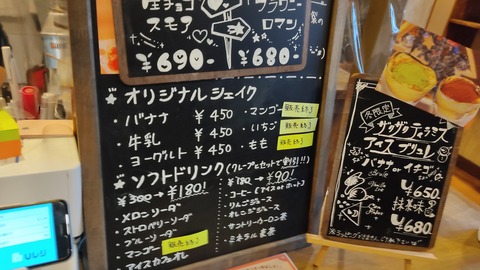 生チョコ
スモア
¥690-
ブラウニー
ロマン
¥680-
オリジナルシェイク
・バナナ ¥450
・牛乳 ¥450
・ヨーグルト ¥450
・マンゴー 販売終了
・いちご 販売終了
・もも 販売終了
ソフトドリンク(クレープとセットで割引!!)
¥300→¥180!
メロンソーダ
ストロベリーソーダ
ブルーソーダ
マンゴー 販売終了
アイスカフェオレ
¥180→¥90!
・コーヒー(アイスorホット)
・りんごジュース
・オレンジジュース
・サントリーウーロン茶
・ミネラル麦茶
冬限定
サクサクティラミス
アイスブリュレ
バナナorイチゴ
¥650
抹茶味
¥680-